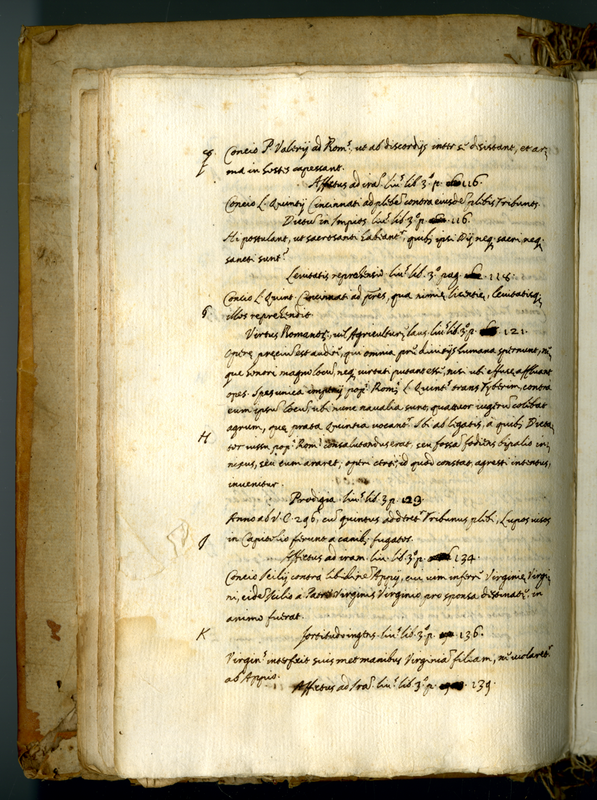 Concio P. Valerij ad Rom. ut ab discordijs inter se desistant, et ar-
ma in hostes capessant.
Affectus ad iram. liu. lib. 3.º p. 116.
Concio L. Quintij Cincinnati ad plebem contra eiusdem plebis Tribunos.
Dictum in Impios. liu. lib. 3.º p. 116.
Hi postulant, ut sacrosanti habeantur, quibus ipsi Dij neq. sacri, neq.
sancti sunt?
Leuitatis reprehensio. liu. lib. 3.º pag. 118.
Concio L. Quint. Cincinnat. ad pres, qua nimiae licentiae, leuitatisq.
G illos reprehendit.
Virtus Romanor. uel Agriculturae laus. liu. lib. 3.º p. 121.
Opere precium est audire, qui omnia prae diuitijs humana spernunt, ne-
que honori magno locum, neq. uirtuti putant esse, nisi ubi effuse affluant
opes. Spes unica imperij pop. Rom. L. Quint. trans Tyberim, contra
eum ipsum locum, ubi nunc naualia sunt, quattuor iugerum colebat
agrum, quae prata Quintia uocant. Ibi ab legatis, a quibus Dicta-
H tor iussu pop. Rom. consalutandus erat, seu fossam fodiens bipalio in-
nixus, seu cum araret, operi certe, id quod constat, agresti intentus,
inuenitur.
Prodigia. liu. lib. 3 p. 129.
Anno ab V. C. 296, cum quintus Tribunus plebi, Lupos uisos
in Capitolio ferunt a canibus fugatos.
Affectus ad iram. liu. lib. 3.º p. 134.
Concio Icilij contra libidinem Appij, cum uim inferret Virginiae, Virgi-
ni, eidem Icilio a Patre Virginis Virginio pro sponsa destinatae, in
animo fuerat.
K Fortitudo ingens. liu. lib. 3.º p. 136.
Virgin. interfecit suis met manibus Virginiam filiam, ne uiolaret.
ab Appio.
Affectus ad Iram. liu. lib. 3.º p. 139.